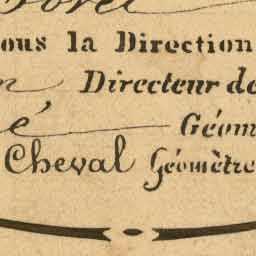 ous la Direction
Directeur de
é Géom
Cheval Géomètre